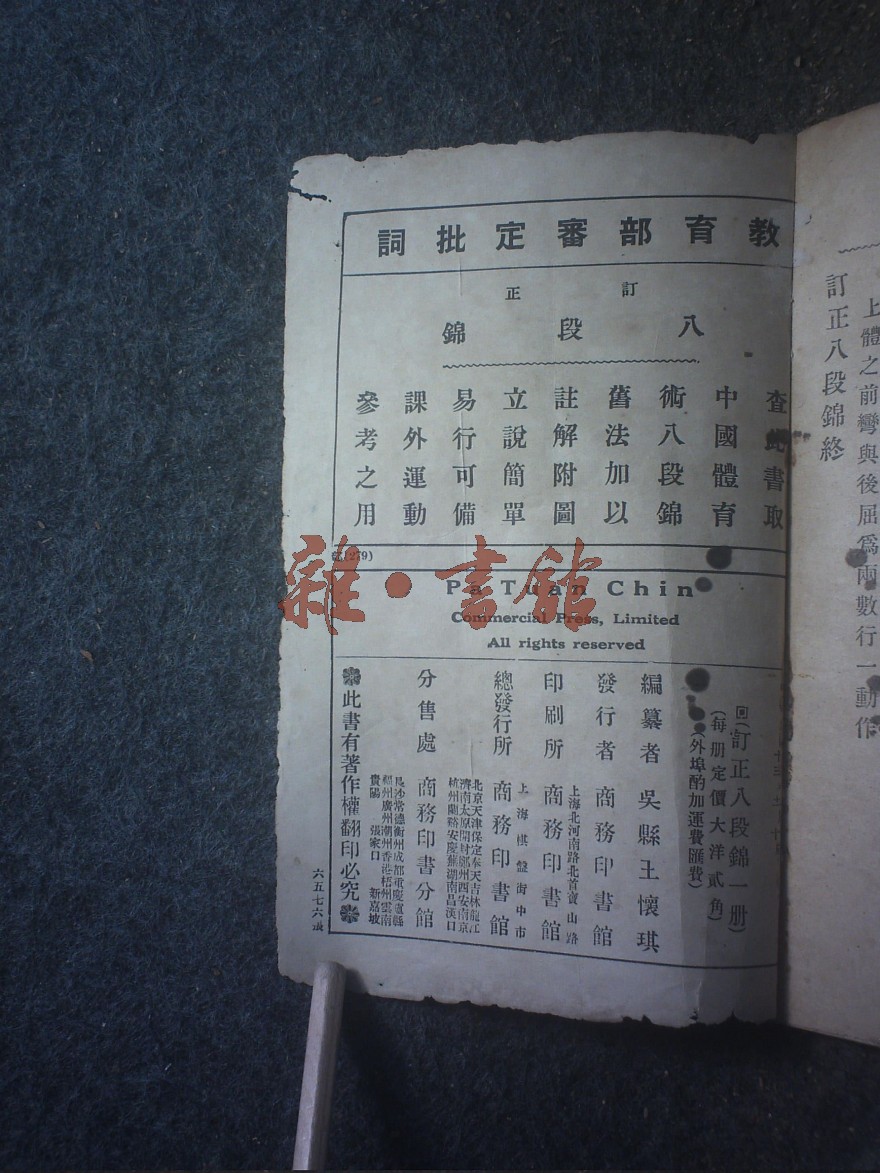 上體之前彎與後屈爲兩數行一動作
訂正八段錦終
教育部審定批詞
訂正
八段錦
查此書取
中國體育
術八段錦
舊法加以
註解附圖
立說簡單
易行可備
課外運動
參考之用
Pa Tuan Chin
Commercial Press, Limited
All rights reserved
(訂正八段錦一册)
(每册定價大洋貳角)
(外埠酌加運費匯費)
編纂者 吳縣王懷琪
發行者 商務印書館
印刷所 上海北河南路北首寶山路 商務印書館
總發行所 上海棋盤街中市 商務印書館
分售處 商務印書分館
北京天津保定奉天吉林龍江
濟南太原開封鄭州西安南京
杭州蘭谿安慶蕪湖南昌漢口
長沙常德衡州成都重慶瀘縣
福州廣州潮州香港梧州雲南
貴陽 張家口 新嘉坡
此書有著作權翻印必究
六五七六
雜·書館